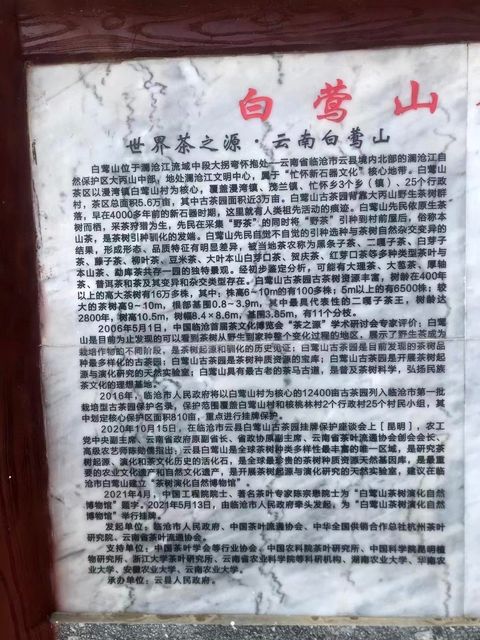 白莺山
世界茶之源·云南白莺山
白莺山位于澜沧江流域中段大拐弯怀抱处—云南省临沧市云县境内北部的澜沧江自
然保护区大丙山中部，地处澜沧江文明中心，属于“忙怀新石器文化”核心地带。白莺山
茶区以漫湾镇白莺山村为核心，覆盖漫湾镇、茂兰镇、忙怀乡3个乡（镇）、25个行政
村，茶区总面积5.6万亩，其中古茶园面积近3万亩。白莺山古茶园背靠大丙山野生茶树群
落，早在4000多年前的新石器时期，这里就有人类祖先活动的痕迹。白莺山先民依原生茶
树而栖，采茶狩猎为生，先民在采集“野茶”的同时将“野茶”引种到村前屋后，俗称本
山茶，是茶树引种驯化的发端。白莺山先民自觉不自觉的引种选种与茶树自然杂交变异的
结果，形成形态、品质特征有明显差异，被当地茶农称为黑条子茶、二嘎子茶、白芽子
茶、藤子茶、柳叶茶、豆米茶、大叶本山白芽口茶、贺庆茶、红芽口茶等多种类型茶叶与
本山茶、勐库茶共存一园的独特景观。经初步鉴定分析，可能有大理茶、大苞茶、厚轴
茶、普洱茶和及其变异及杂交类型存在。白莺山古茶园古茶树资源丰富，树龄在400年
以上的高大茶树有16万多株，其中：株高6～10m的有100多株；5m以上的有6500株；较
大的茶树高9～10m，根部基围0.8～3.9m，其中最具代表性的二嘎子茶王，树龄达
2800年，树高10.5m，树幅8.4×8.6m，基围3.85m，有11个分枝。
2006年5月1日，中国临沧首届茶文化博览会“茶之源”学术研讨会专家评价：白莺
山是目前为止发现的可以看到茶树从野生到家种整个变化过程的地区，展示了野生茶成为
栽培作物的不同阶段，是茶树起源和驯化的历史见证；白莺山古茶园是目前发现的茶树品
种最多样化的古茶园；白莺山古茶园是茶树种质资源的宝库；白莺山古茶园是开展茶树起
源与演化研究的天然实验室；白莺山具有最古老的茶马古道，是普及茶树科学，弘扬民族
茶文化的理想基地。
2016年，临沧市人民政府将以白莺山村为核心的12400亩古茶园列入临沧市第一批
栽培型古茶园保护名录，保护范围覆盖白莺山村和核桃林村2个行政村25个村民小组，其
中划定核心保护区面积810亩，重点进行挂牌保护。
2020年10月15日，在临沧市云县白莺山古茶园挂牌保护座谈会上［昆明］，农工
党中央副主席、云南省政府原副省长、省政协原副主席、云南省茶叶流通协会创会会长、
高级农艺师陈勋儒指出：云县白莺山是全球茶树种类多样性最丰富的唯一区域，是研究茶
树起源、演化和茶文化历史的活化石，是全球最珍贵的茶树种质资源天然基因库，是最重
要的农业文化遗产和自然文化遗产，是开展茶树起源与演化研究的天然实验室，建议在临
沧市白莺山建立“茶树演化自然博物馆”。
2021年4月，中国工程院院士、著名茶叶专家陈宗懋院士为“白莺山茶树演化自然
博物馆”题字。2021年5月13日，由临沧市人民政府牵头发起，为“白莺山茶树演化自然
博物馆”举行挂牌。
发起单位：临沧市人民政府、中国茶叶流通协会、中华全国供销合作总社杭州茶叶
研究院、云南省茶叶流通协会。
支持单位：中国茶叶学会等行业协会、中国农科院茶叶研究所、中国科学院昆明植
物研究所、浙江大学茶叶研究所、云南省农业科学院等科研机构、湖南农业大学、华南农
业大学、安徽农业大学、云南农业大学。
承办单位：云县人民政府。